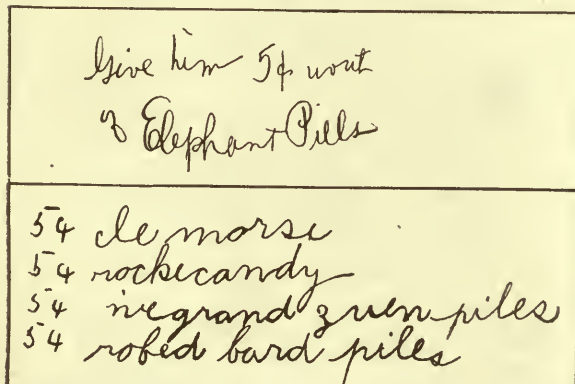 Give him 5¢ wort
of Elephant Pills
5¢ cle morse
5¢ rockecandy
5¢ ivegrand zuen piles
5¢ robed bard piles